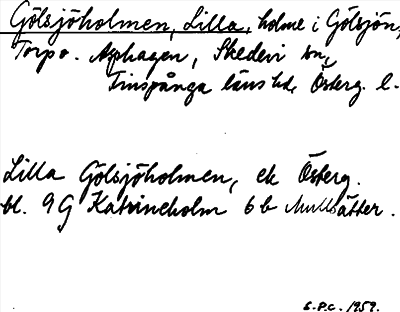 Gölsjöholmen, Lilla, holme i Gölsjön,
Torpo. Asphagen, Skedevi sn,
Finspånga läns hd. Österg. l.
Lilla Gölsjöholmen, ek Österg.
bl. 9G Katrineholm 6 b Mullsätter.
E.P.C. 1959.